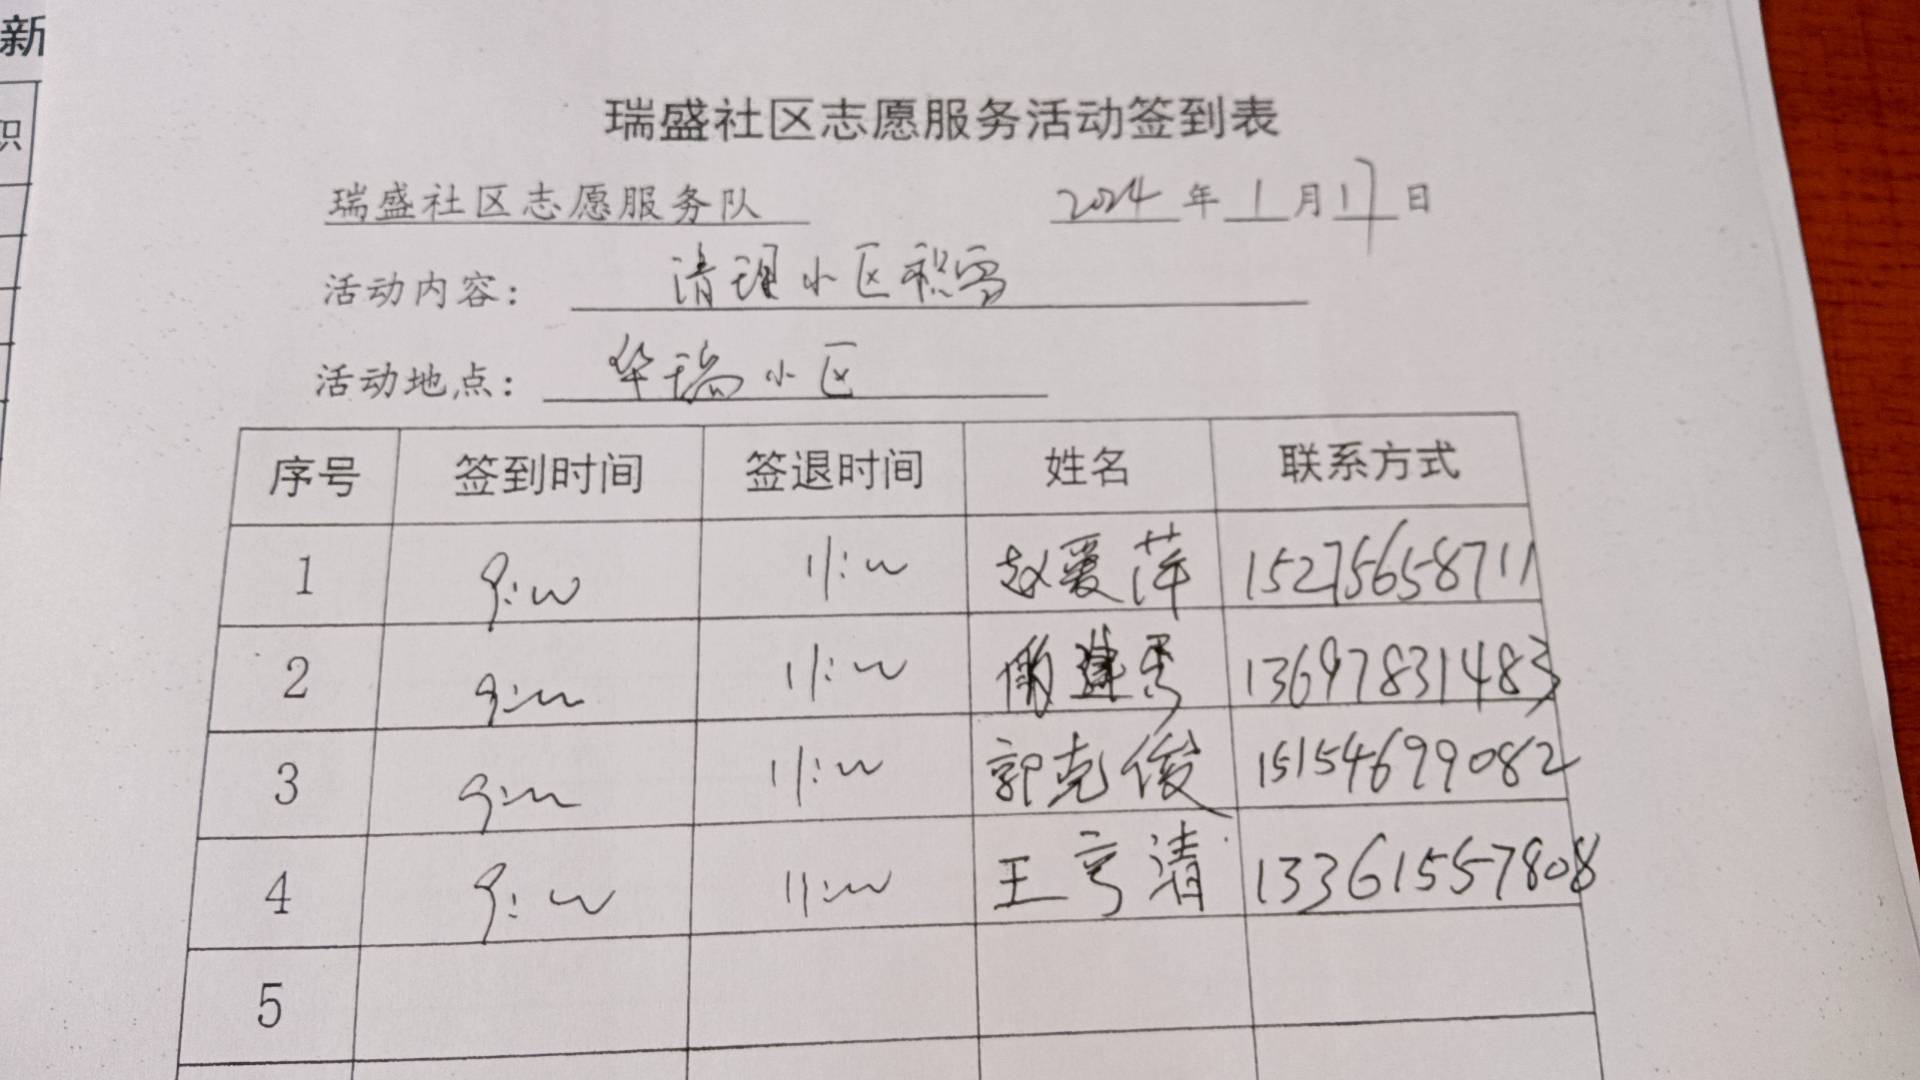 新
织
瑞盛社区志愿服务活动签到表
瑞盛社区志愿服务队 2024年1月17日
活动内容: 清理小区积雪
活动地点: 华瑞小区
序号 签到时间 签退时间 姓名 联系方式
1 9:00 11:00 赵爱萍 15275658711
2 9:00 11:00 13697831483
3 9:00 11:00 郭克俊 15154699082
4 9:00 11:00 王亨清 13361557808
5